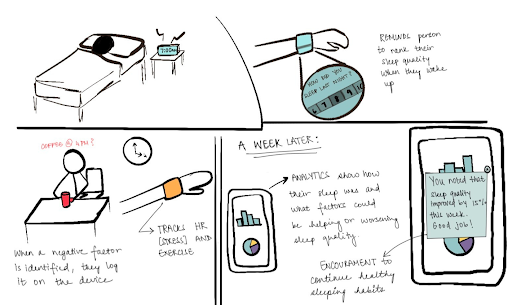 7:00am
HOW DID YOU
SLEEP LAST NIGHT?
6 7 8 9 10
REMINDS person
to rank their
sleep quality
when they wake
up
COFFEE @ 4PM?
When a negative factor
is identified, they log
it on the device
TRACKS HR
[STRESS] AND
EXERCISE
A WEEK LATER:
ANALYTICS show how
their sleep was and
what factors could
be helping or worsening
sleep quality.
You noted that
sleep quality
improved by 15%
this week.
Good job!
ENCOURAMENT to
continue healthy
sleeping habits